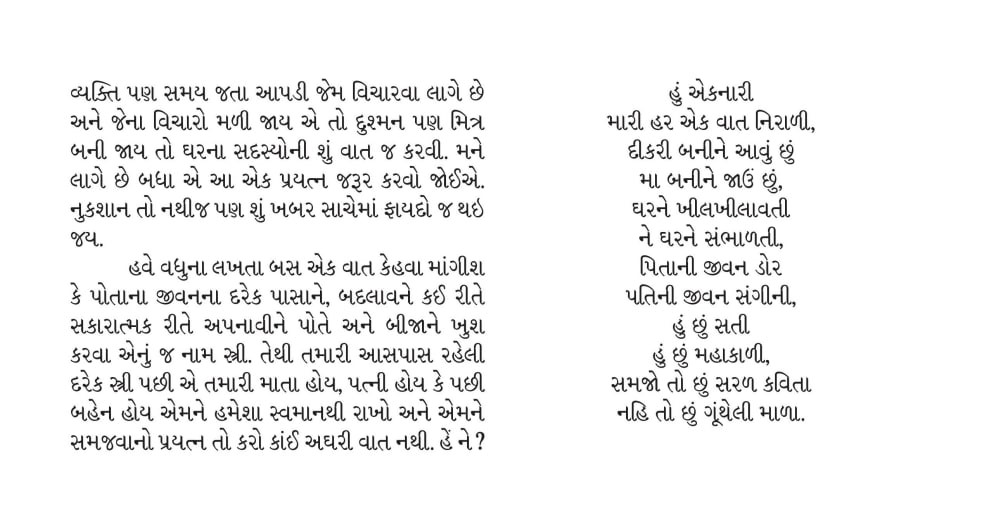 વ્યક્તિ પણ સમય જતા આપડી જેમ વિચારવા લાગે છે
અને જેના વિચારો મળી જાય એ તો દુશ્મન પણ મિત્ર
બની જાય તો ઘરના સદસ્યોની શું વાત જ કરવી. મને
લાગે છે બધા એ આ એક પ્રયત્ન જરૂર કરવો જોઈએ.
નુકશાન તો નથીજ પણ શું ખબર સાચેમાં ફાયદો જ થઇ
જય.
હવે વધુના લખતા બસ એક વાત કેહવા માંગીશ
કે પોતાના જીવનના દરેક પાસાને, બદલાવને કઈ રીતે
સકારાત્મક રીતે અપનાવીને પોતે અને બીજાને ખુશ
કરવા એનું જ નામ સ્ત્રી. તેથી તમારી આસપાસ રહેલી
દરેક સ્ત્રી પછી એ તમારી માતા હોય, પત્ની હોય કે પછી
બહેન હોય એમને હમેશા સ્વમાનથી રાખો અને એમને
સમજવાનો પ્રયત્ન તો કરો કાંઈ અઘરી વાત નથી. હેં ને ?
હું એકનારી
મારી હર એક વાત નિરાળી,
દીકરી બનીને આવું છું
મા બનીને જાઉં છું,
ઘરને ખીલખીલાવતી
ને ઘરને સંભાળતી,
પિતાની જીવન ડોર
પતિની જીવન સંગીની,
હું છું સતી
હું છું મહાકાળી,
સમજો તો છું સરળ કવિતા
નહિ તો છું ગૂંથેલી માળા.